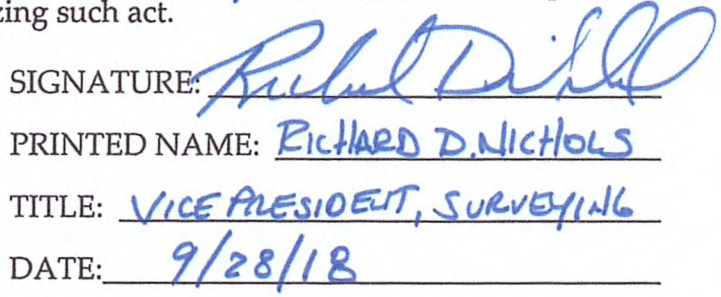 zing such act.
SIGNATURE:
PRINTED NAME: RICHARD D. NICHOLS
TITLE: VICE PRESIDENT, SURVEYING
DATE: 9/28/18